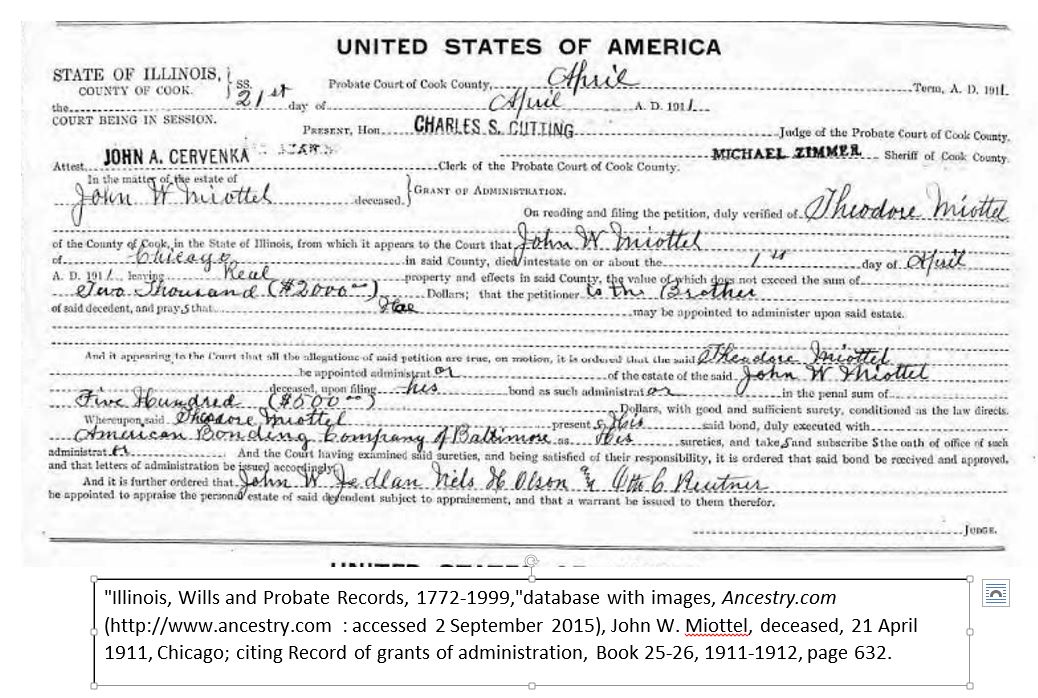 UNITED STATES OF AMERICA
STATE OF ILLINOIS, } SS. Probate Court of Cook County, April Term, A. D. 1911.
COUNTY OF COOK.
the 21st day of April A. D. 1911.
COURT BEING IN SESSION.
PRESENT, Hon. CHARLES S. CUTTING Judge of the Probate Court of Cook County.
Attest JOHN A. CERVENKA Clerk of the Probate Court of Cook County. MICHAEL ZIMMER Sheriff of Cook County.
In the matter of the estate of
John W Miottel deceased. } GRANT OF ADMINISTRATION.
On reading and filing the petition, duly verified of Theodore Miottel
of the County of Cook, in the State of Illinois, from which it appears to the Court that John W Miottel
of Chicago in said County, died intestate on or about the 1st day of April
A. D. 1911 leaving Real property and effects in said County, the value of which does not exceed the sum of
Two Thousand ($2000.00) Dollars; that the petitioner is the Brother
of said decedent, and prays that He may be appointed to administer upon said estate.
And it appearing to the Court that all the allegations of said petition are true, on motion, it is ordered that the said Theodore Miottel
be appointed administrator of the estate of the said John W Miottel
deceased, upon filing his bond as such administrator in the penal sum of
Five Hundred ($500.00) Dollars, with good and sufficient surety, conditioned as the law directs.
Whereupon said Theodore Miottel presents his said bond, duly executed with
American Bonding Company of Baltimore as His sureties, and takes and subscribes the oath of office of such
administrator. And the Court having examined said sureties, and being satisfied of their responsibility, it is ordered that said bond be received and approved,
and that letters of administration be issued accordingly.
And it is further ordered that John W Jedlan Niels H Olson & Otto C Reutner
be appointed to appraise the personal estate of said dependent subject to appraisement, and that a warrant be issued to them therefor.
JUDGE.
"Illinois, Wills and Probate Records, 1772-1999,"database with images, Ancestry.com
(http://www.ancestry.com : accessed 2 September 2015), John W. Miottel, deceased, 21 April
1911, Chicago; citing Record of grants of administration, Book 25-26, 1911-1912, page 632.